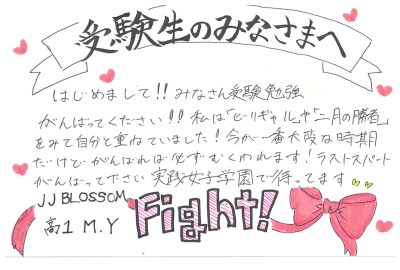 受験生のみなさまへ
はじめまして!!みなさん受験勉強
がんばってください!!私は「ビリギャル」や「二月の勝者」
をみて自分と重ねていました!今が一番大変な時期
だけどがんばれば必ずむくわれます!ラストスパート
がんばって下さい実践女子学園で待ってます
JJ BLOSSOM
高1 M.Y
Fight!